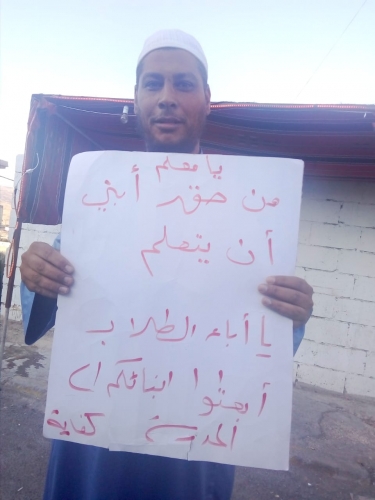 يا معلم
من حقي أبني
أن يتعلم
يا أباء الطلاب
أبعثوا ابنائكم اى
المدرسة كفاية